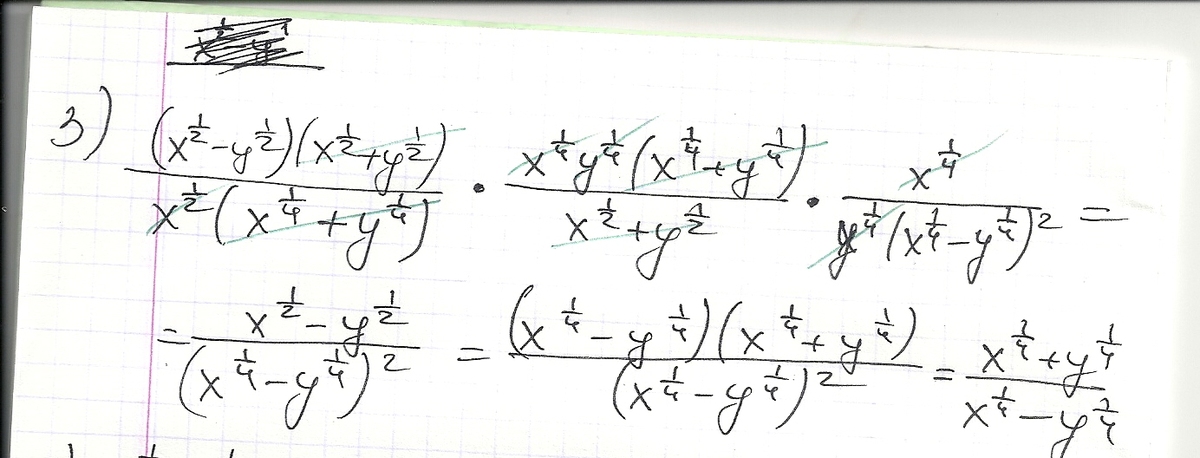 3) \frac{(x^{\frac{1}{2}}-y^{\frac{1}{2}})(x^{\frac{1}{2}}+y^{\frac{1}{2}})}{x^{\frac{1}{2}}(x^{\frac{1}{4}}+y^{\frac{1}{4}})} \cdot \frac{x^{\frac{1}{4}}y^{\frac{1}{4}}(x^{\frac{1}{4}}+y^{\frac{1}{4}})}{x^{\frac{1}{2}}+y^{\frac{1}{2}}} \cdot \frac{x^{\frac{1}{4}}}{y^{\frac{1}{4}}(x^{\frac{1}{4}}-y^{\frac{1}{4}})^2} =
= \frac{x^{\frac{1}{2}}-y^{\frac{1}{2}}}{(x^{\frac{1}{4}}-y^{\frac{1}{4}})^2} = \frac{(x^{\frac{1}{4}}-y^{\frac{1}{4}})(x^{\frac{1}{4}}+y^{\frac{1}{4}})}{(x^{\frac{1}{4}}-y^{\frac{1}{4}})^2} = \frac{x^{\frac{1}{4}}+y^{\frac{1}{4}}}{x^{\frac{1}{4}}-y^{\frac{1}{4}}}